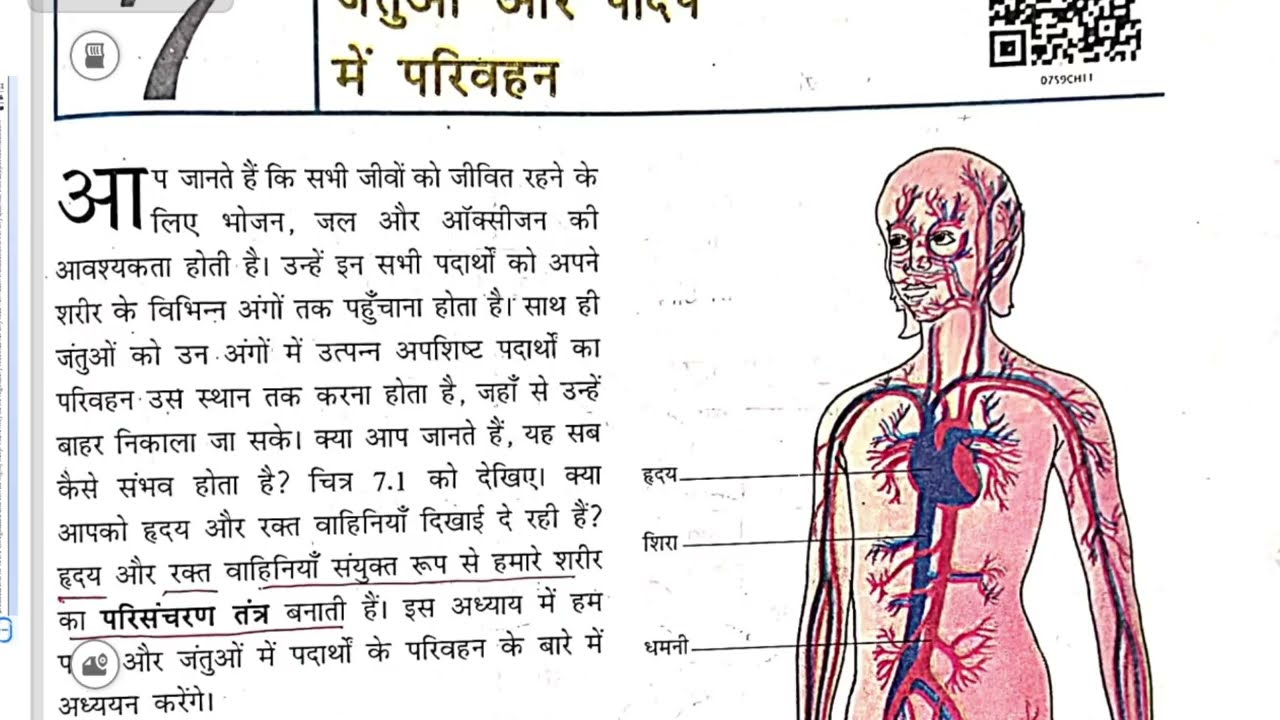 7
जंतुओं और पादप
में परिवहन
0759CH11
आप जानते हैं कि सभी जीवों को जीवित रहने के
लिए भोजन, जल और ऑक्सीजन की
आवश्यकता होती है। उन्हें इन सभी पदार्थों को अपने
शरीर के विभिन्न अंगों तक पहुँचाना होता है। साथ ही
जंतुओं को उन अंगों में उत्पन्न अपशिष्ट पदार्थों का
परिवहन उस स्थान तक करना होता है, जहाँ से उन्हें
बाहर निकाला जा सके। क्या आप जानते हैं, यह सब
कैसे संभव होता है? चित्र 7.1 को देखिए। क्या
आपको हृदय और रक्त वाहिनियाँ दिखाई दे रही हैं?
हृदय और रक्त वाहिनियाँ संयुक्त रूप से हमारे शरीर
का परिसंचरण तंत्र बनाती हैं। इस अध्याय में हम
और जंतुओं में पदार्थों के परिवहन के बारे में
अध्ययन करेंगे।
हृदय
शिरा
धमनी